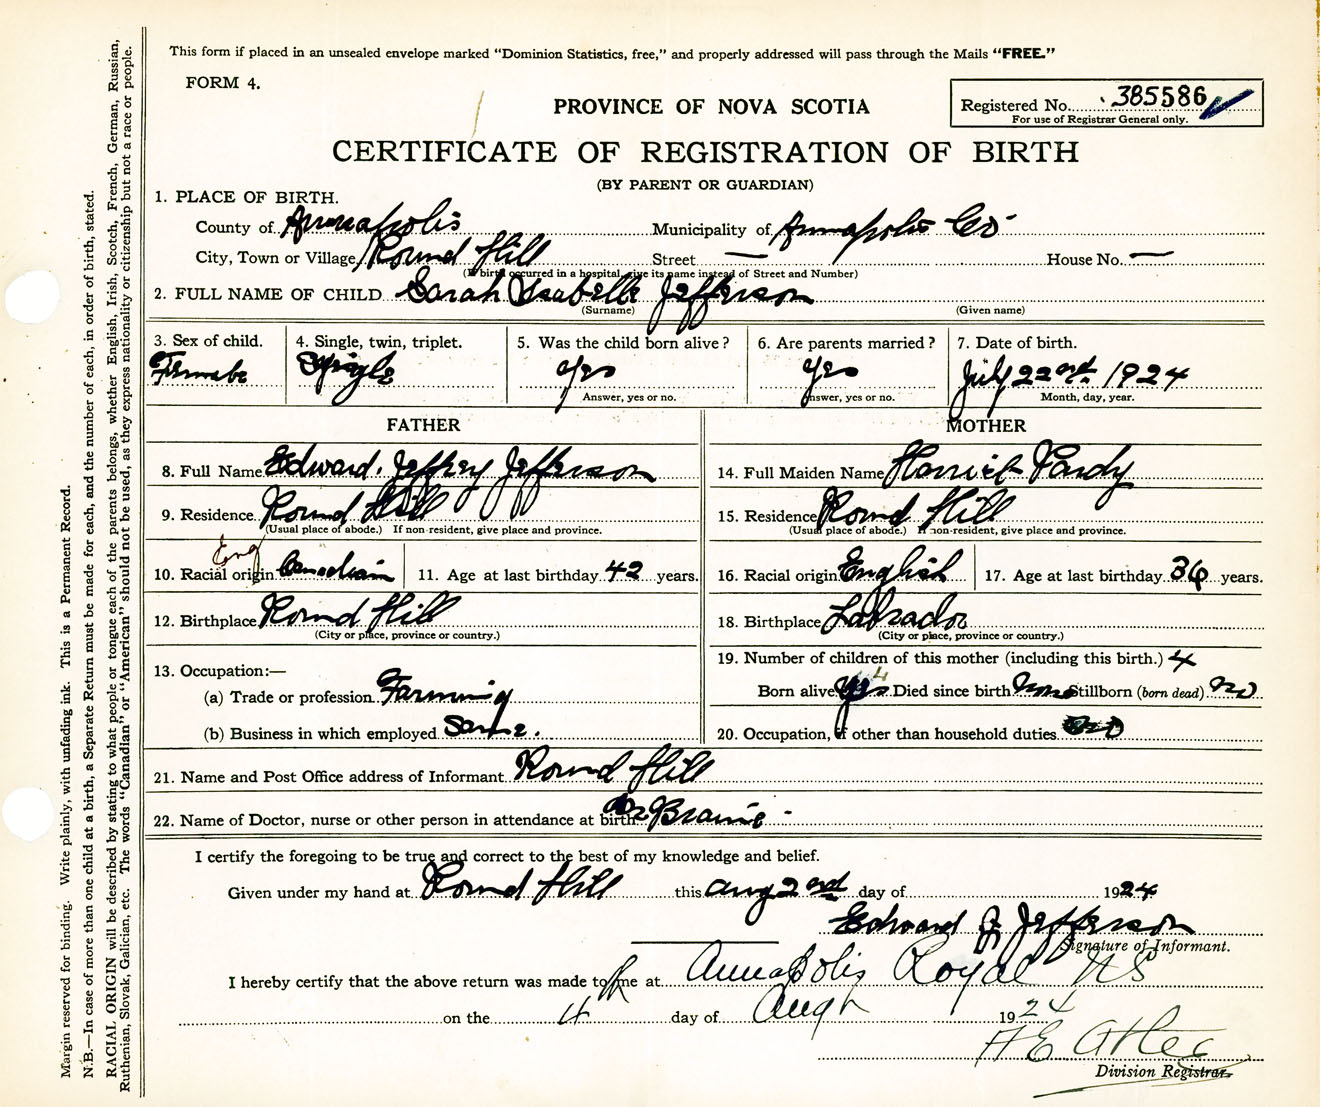 This form if placed in an unsealed envelope marked “Dominion Statistics, free,” and properly addressed will pass through the Mails “FREE.”
FORM 4.
PROVINCE OF NOVA SCOTIA
Registered No. 385586
For use of Registrar General only.
CERTIFICATE OF REGISTRATION OF BIRTH
(BY PARENT OR GUARDIAN)
1. PLACE OF BIRTH.
County of Annapolis Municipality of Annapolis Co
City, Town or Village Round Hill Street — House No. —
(If birth occurred in a hospital, give its name instead of Street and Number)
2. FULL NAME OF CHILD Sarah Isabelle Jefferson
(Surname) (Given name)
3. Sex of child. 4. Single, twin, triplet. 5. Was the child born alive? 6. Are parents married? 7. Date of birth.
Female Single Yes Yes July 22nd 1924
Answer, yes or no. Answer, yes or no. Month, day, year.
FATHER MOTHER
8. Full Name Edward. Jeffrey Jefferson 14. Full Maiden Name Harriet Pardy
9. Residence Round Hill 15. Residence Round Hill
(Usual place of abode.) If non-resident, give place and province. (Usual place of abode.) If non-resident, give place and province.
Eng
10. Racial origin Canadian 11. Age at last birthday 42 years. 16. Racial origin English 17. Age at last birthday 36 years.
12. Birthplace Round Hill 18. Birthplace Labrador
(City or place, province or country.) (City or place, province or country.)
13. Occupation:— 19. Number of children of this mother (including this birth.) 4
(a) Trade or profession Farming Born alive Yes 4 Died since birth None Stillborn (born dead) no
(b) Business in which employed Same. 20. Occupation, if other than household duties
21. Name and Post Office address of Informant Round Hill
22. Name of Doctor, nurse or other person in attendance at birth Dr
I certify the foregoing to be true and correct to the best of my knowledge and belief.
Given under my hand at Round Hill this Aug 2nd day of 1924
Edward J Jefferson
Signature of Informant.
I hereby certify that the above return was made to me at Annapolis Royal NS
on the 4th day of Aug 1924
Division Registrar.
Margin reserved for binding. Write plainly, with unfading ink. This is a Permanent Record.
N.B.—In case of more than one child at a birth, a Separate Return must be made for each, and the number of each, in order of birth, stated.
RACIAL ORIGIN will be described by stating to what people or tongue each of the parents belongs, whether English, Irish, Scotch, French, German, Russian,
Ruthenian, Slovak, Galician, etc. The words “Canadian” or “American” should not be used, as they express nationality or citizenship but not a race or people.